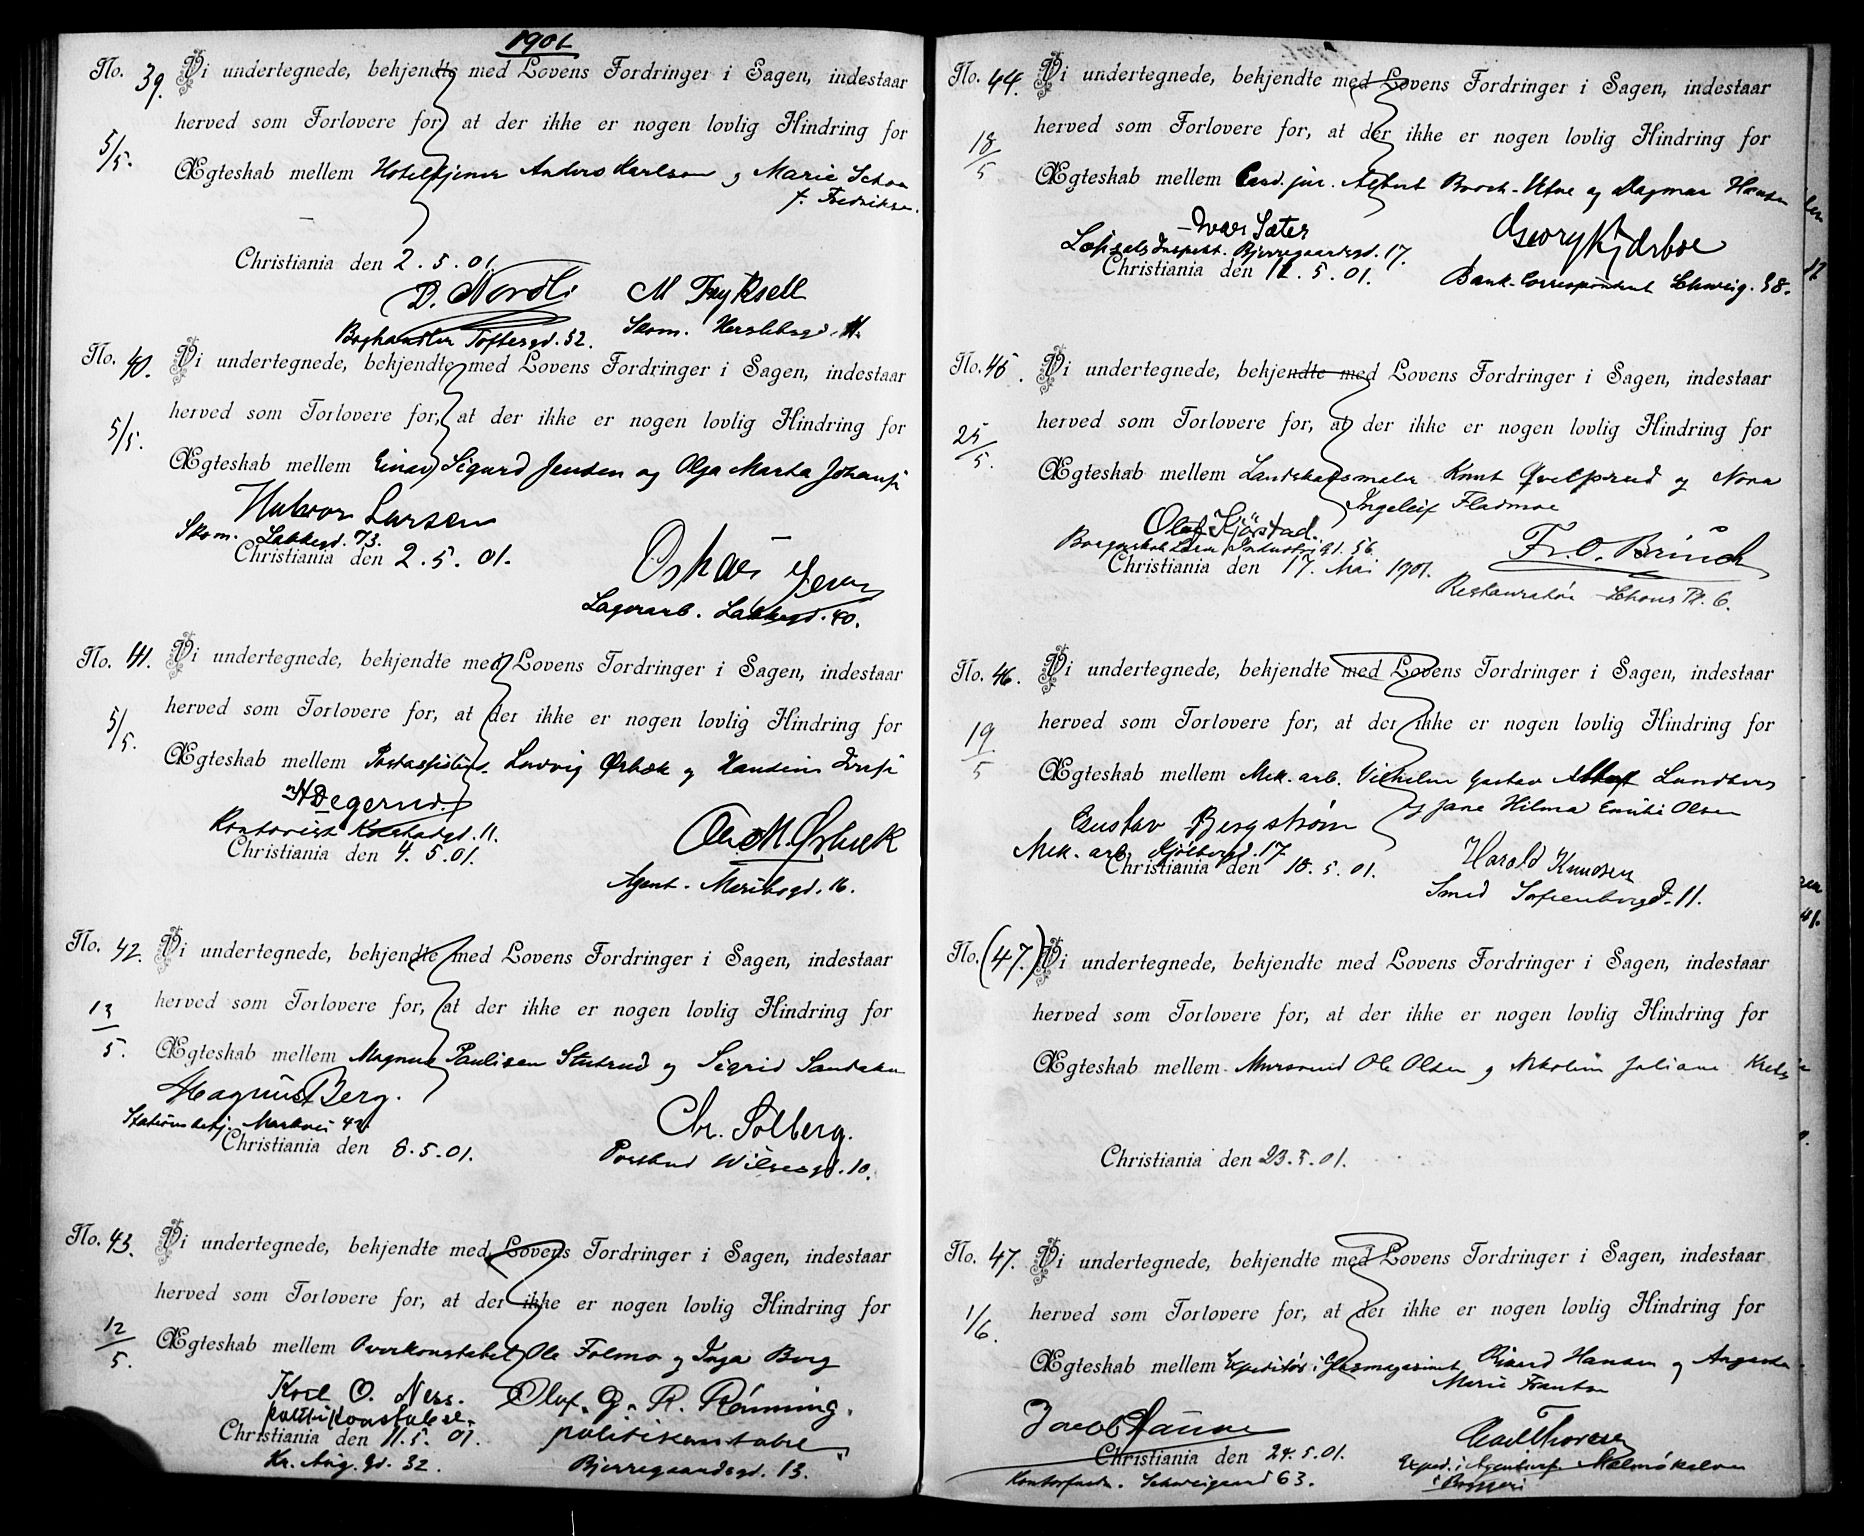 1901
No. 39. Vi undertegnede, bekjendte med Lovens Fordringer i Sagen, indestaar
5/5. herved som Forlovere for, at der ikke er nogen lovlig Hindring for
Ægteskab mellem Hoteltjener Anders Karlsen og Marie Schou
f. Fredriksen.
Christiania den 2.5.01.
D. Nordli M Fryksell
Boghandler Toftesgd. 52. Skom. Herslebsgd.
No. 40. Vi undertegnede, bekjendte med Lovens Fordringer i Sagen, indestaar
5/5. herved som Forlovere for, at der ikke er nogen lovlig Hindring for
Ægteskab mellem Einar Sigurd Jensen og Olga Marta Johansen
Halvor Larsen
Skom. Lakkegd. 73.
Christiania den 2.5.01.
Oskar Jensen
Lagerarb. Lakkegd. 40.
No. 41. Vi undertegnede, bekjendte med Lovens Fordringer i Sagen, indestaar
5/5. herved som Forlovere for, at der ikke er nogen lovlig Hindring for
Ægteskab mellem Postassistent Ludvig Ørbæk og
Degerud.
Kontorist 11.
Christiania den 4.5.01.
Ole M. Ørbæk
Agent. 16.
No. 42. Vi undertegnede, bekjendte med Lovens Fordringer i Sagen, indestaar
13/5. herved som Forlovere for, at der ikke er nogen lovlig Hindring for
Ægteskab mellem Magnus Paulsen Stutrud og Sigrid Sandaker
Magnus Berg.
Stationsbetj. Markvei 42
Christiania den 8.5.01.
Chr. Solberg.
Postbud Wilsesgd. 10.
No. 43. Vi undertegnede, bekjendte med Lovens Fordringer i Sagen, indestaar
12/5. herved som Forlovere for, at der ikke er nogen lovlig Hindring for
Ægteskab mellem Overkonstabel Ole Folmo og Inga Berg
Karl O. Ness. Oluf. G. R. Rönning.
politikonstabel.
Christiania den 11.5.01. politikonstabel
Kr. Aug. gd. 32. Bjerregaardsgd. 13.
No. 44. Vi undertegnede, bekjendte med Lovens Fordringer i Sagen, indestaar
18/5 herved som Forlovere for, at der ikke er nogen lovlig Hindring for
Ægteskab mellem Cand. jur. Albert Broch-Utne og Dagmar Hansen
Ivar Sæter Georg Kjderboe
Løpsals Inspekt. Bjerregaardsgd. 17.
Christiania den 12.5.01. Bank-Correspondent Schweig. 58.
No. 45. Vi undertegnede, bekjendte med Lovens Fordringer i Sagen, indestaar
25/5. herved som Forlovere for, at der ikke er nogen lovlig Hindring for
Ægteskab mellem Landskabsmaler Knut Qvelprud og Nora
Ingeleif Fladmoe
Olaf Kjöstad. Fr. O. Brinch
Industrigt. 56
Christiania den 17. Mai 1901.
Restauratør Schous Pl. 6.
No. 46. Vi undertegnede, bekjendte med Lovens Fordringer i Sagen, indestaar
19/5 herved som Forlovere for, at der ikke er nogen lovlig Hindring for
Ægteskab mellem Mek. arb. Vilhelm Gustav Albert Lundberg
og Jane Hilma Emilie Olsen
Gustav Bergstrøm
Mek. arb. Kjølberggd. 17
Christiania den 18.5.01. Harald Knudsen
Smed Sofienberggd. 11.
No. (47.) Vi undertegnede, bekjendte med Lovens Fordringer i Sagen, indestaar
herved som Forlovere for, at der ikke er nogen lovlig Hindring for
Ægteskab mellem Mursvend Ole Olsen og Nikoline Juliane
Christiania den 23.5.01.
No. 47. Vi undertegnede, bekjendte med Lovens Fordringer i Sagen, indestaar
1/6. herved som Forlovere for, at der ikke er nogen lovlig Hindring for
Ægteskab mellem Expeditør i Glasmagasinet Eivind Hansen og Augusta
Marie Frantzen
Jacob Hansen Carl Thoresen
Christiania den 24.5.01.
Schweigaard 63. Exped. i